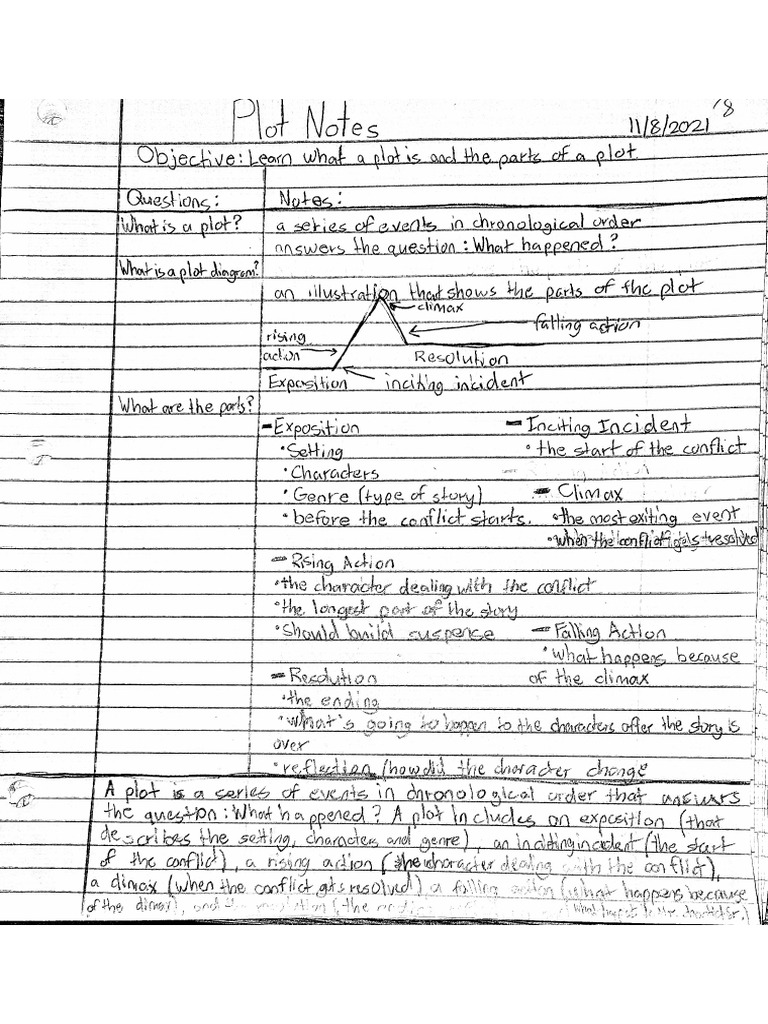 Plot Notes
11/8/2021
8
Objective: Learn what a plot is and the parts of a plot
Questions:
Notes:
What is a plot?
a series of events in chronological order
answers the question: What happened?
What is a plot diagram?
an illustration that shows the parts of the plot
climax
falling action
rising
action
Resolution
Exposition
inciting incident
What are the parts?
- Exposition
• Setting
• Characters
• Genre (type of story)
• before the conflict starts.
- Inciting Incident
• the start of the conflict
- Climax
• the most exiting event
• when the conflict gets resolved
- Rising Action
• the character dealing with the conflict
• the longest part of the story
• Should build suspense
- Falling Action
• what happens because
of the climax
- Resolution
• the ending
• what's going to happen to the characters after the story is
over
• reflection (how did the character change
A plot is a series of events in chronological order that answers
the question: What happened? A plot includes an exposition (that
describes the setting, characters and genre), an inciting incident (the start
of the conflict), a rising action (the character dealing with the conflict),
a climax (when the conflict gets resolved) a falling action (what happens because
of the climax), and the resolution (the